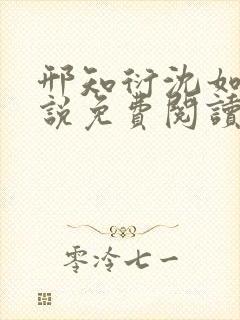 邢知衍沈如
說免費閱讀
零泠七一